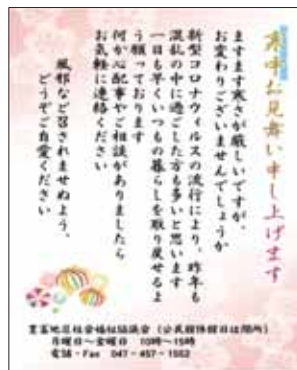 寒中お見舞い申し上げます
ますます寒さが厳しいですが、
お変わりございませんでしょうか
新型コロナウィルスの流行により、昨年も
混乱の中に過ごした方も多いと思います
一日も早くいつもの暮らしを取り戻せるよ
う願っております
何か心配事やご相談がありましたら
お気軽に連絡ください
風邪など召されませぬよう、
どうぞご自愛ください
豊富地区社会福祉協議会（公民館休館日は閉所）
月曜日〜金曜日 10時〜15時
電話・Fax 047-457-1552